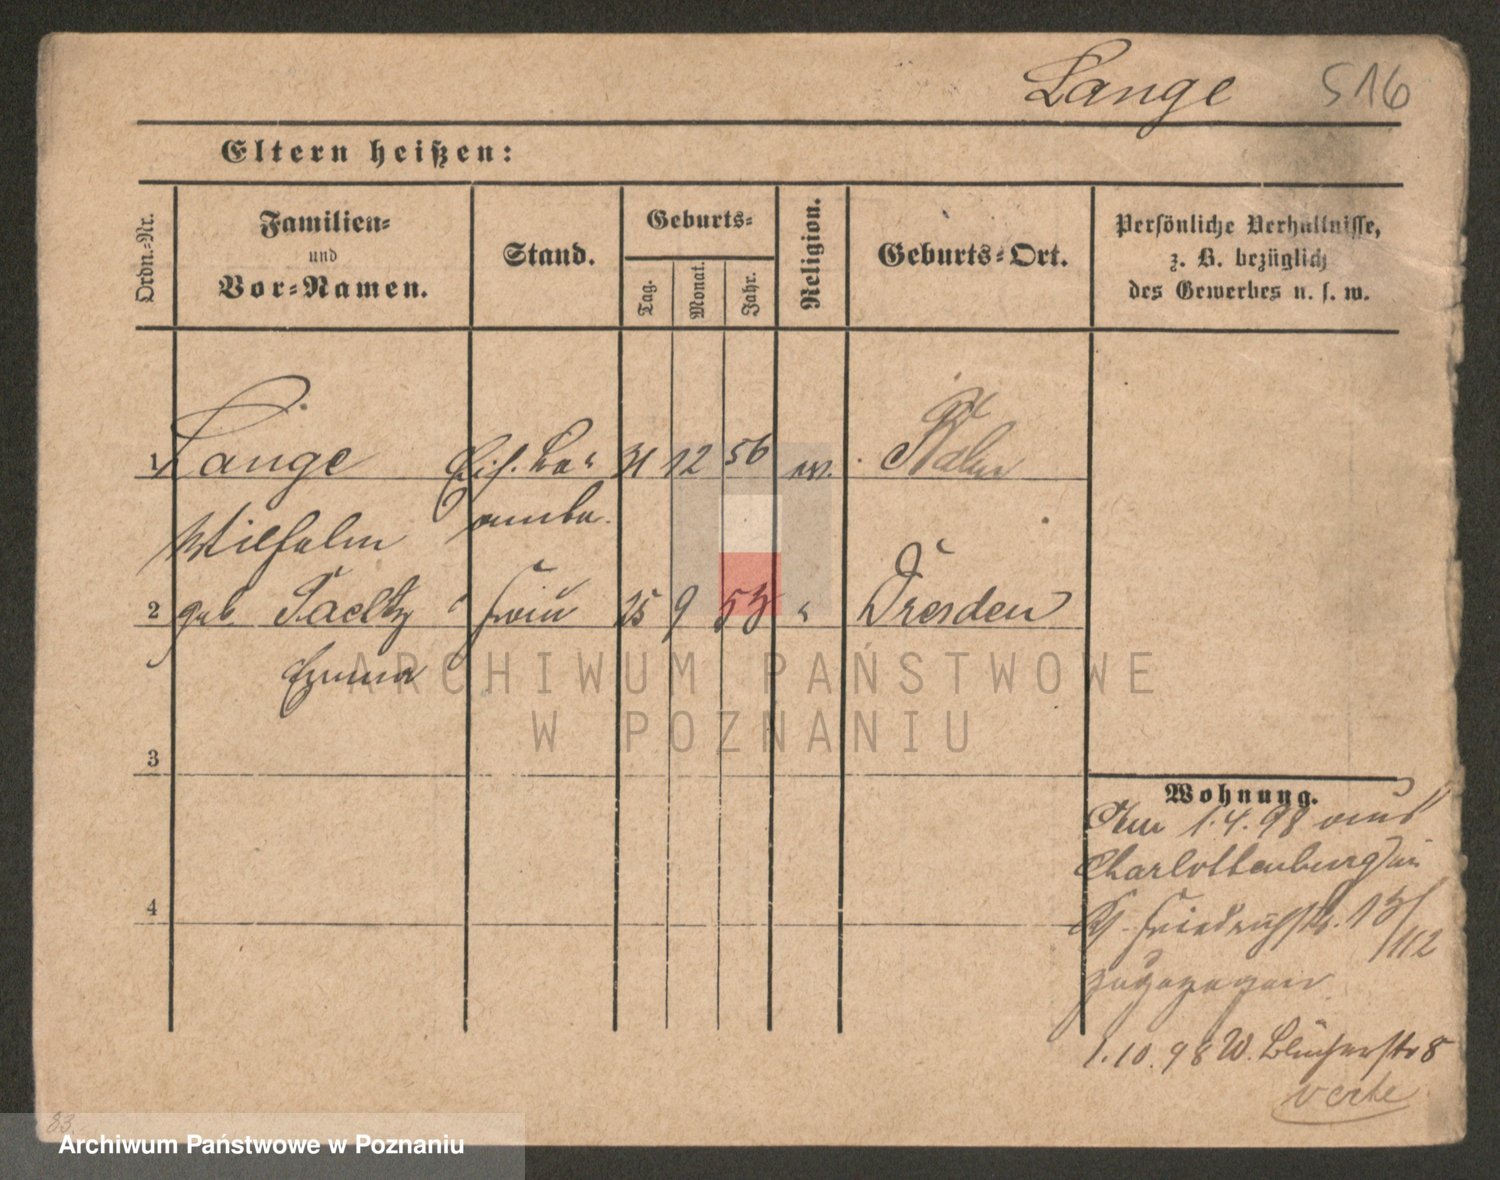 Lange 516
Eltern heißen:
Ordn.-Nr.
Familien-
und
Vor-Namen.
Stand.
Geburts-
Tag.
Monat.
Jahr.
Religion.
Geburts-Ort.
Persönliche Verhältnisse,
z. B. bezüglich
des Gewerbes u. s. w.
1 Lange Eis. 31 12 56 ev.
Wilhelm
2 geb Emma Frau 25 9 53 " Dresden
ARCHIWUM PAŃSTWOWE
W POZNANIU
3
4
Wohnung.
Am 1.4.98 aus
Charlottenburg
Friedrichstr. 13/
112
zugezogen
1.10.98 W. Blücherstr 8
verte
83.
Archiwum Państwowe w Poznaniu